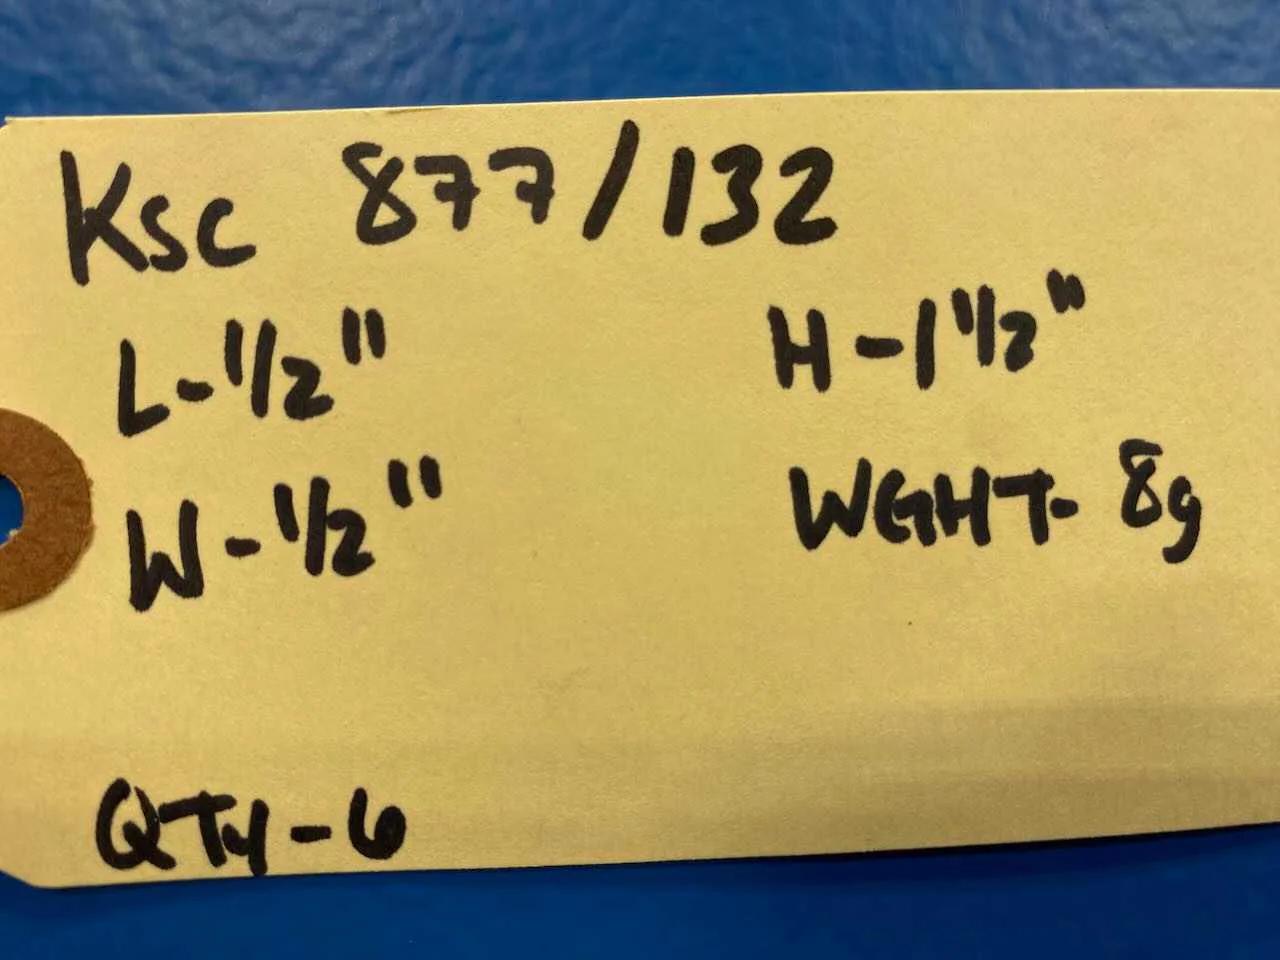 Ksc 877/132
L-1/2" H-1 1/2"
W-1/2" WGHT- 8g
QTy-6